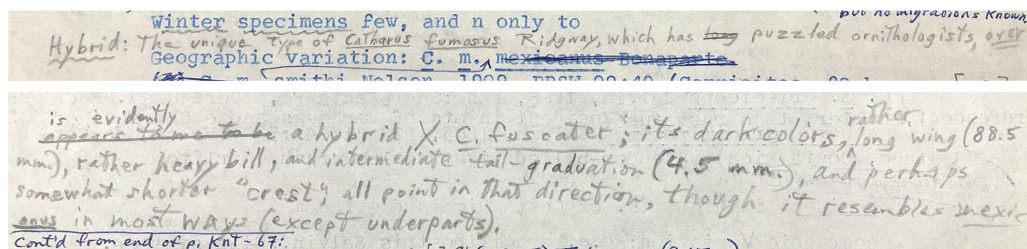 but no migrations known
Winter specimens few, and n only to
Hybrid: The unique type of Catharus fumosus Ridgway, which has puzzled ornithologists, over
Geographic variation: C. m. mexicanus Bonaparte
smithi Nelson
is evidently rather
appears to me to be a hybrid X C. fuscater; its dark colors, long wing (88.5
mm), rather heavy bill, and intermediate tail-graduation (4.5 mm.), and perhaps
somewhat shorter "crest", all point in that direction, though it resembles mexic
anus in most ways (except underparts).
Cont'd from end of p. KnT-67: